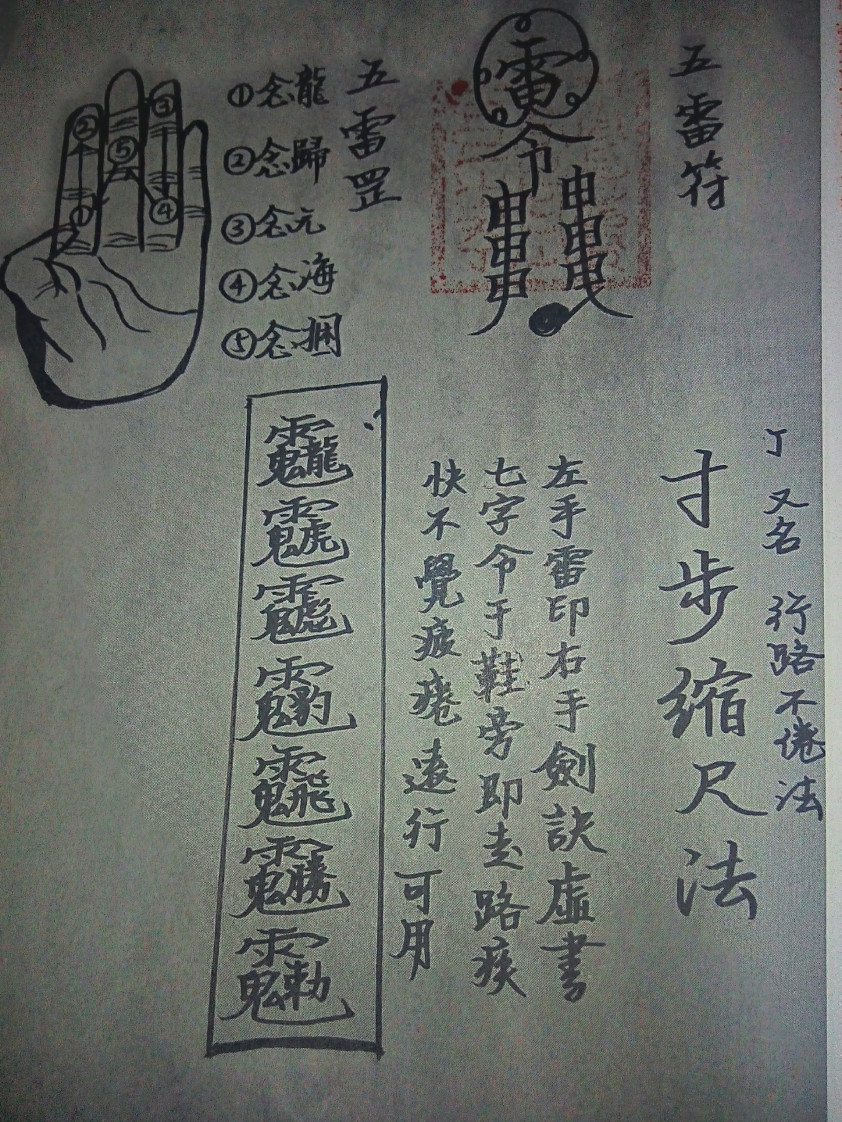 五雷符
雷
令
五雷罡
①念龍
②念歸
③念元
④念海
⑤念捆
② ③ ⑤ ① ④
又名 行路不倦法
寸步缩尺法
左手雷印右手劍訣虛書
七字令于鞋旁即走路疾
快不覺疲癃遠行可用